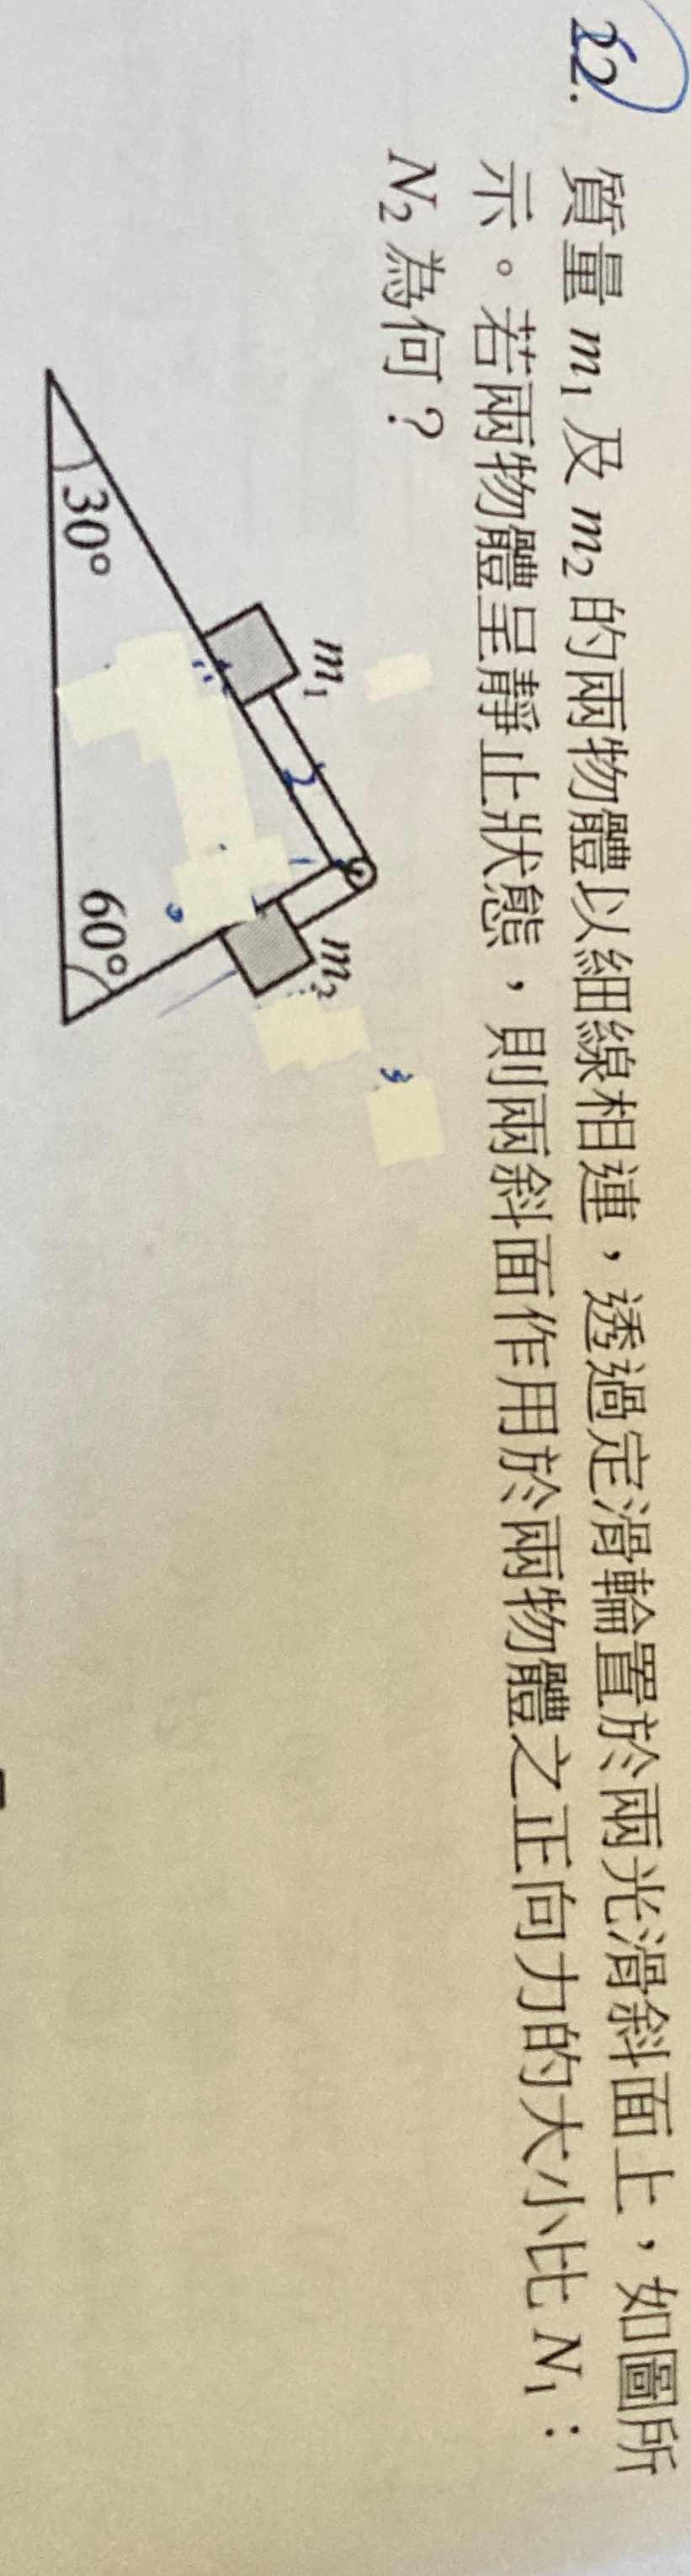 22. 質量 m₁ 及 m₂ 的兩物體以細線相連，透過定滑輪置於兩光滑斜面上，如圖所
示。若兩物體呈靜止狀態，則兩斜面作用於兩物體之正向力的大小比 N₁：
N₂ 為何？
m₁
m₂
30°
60°